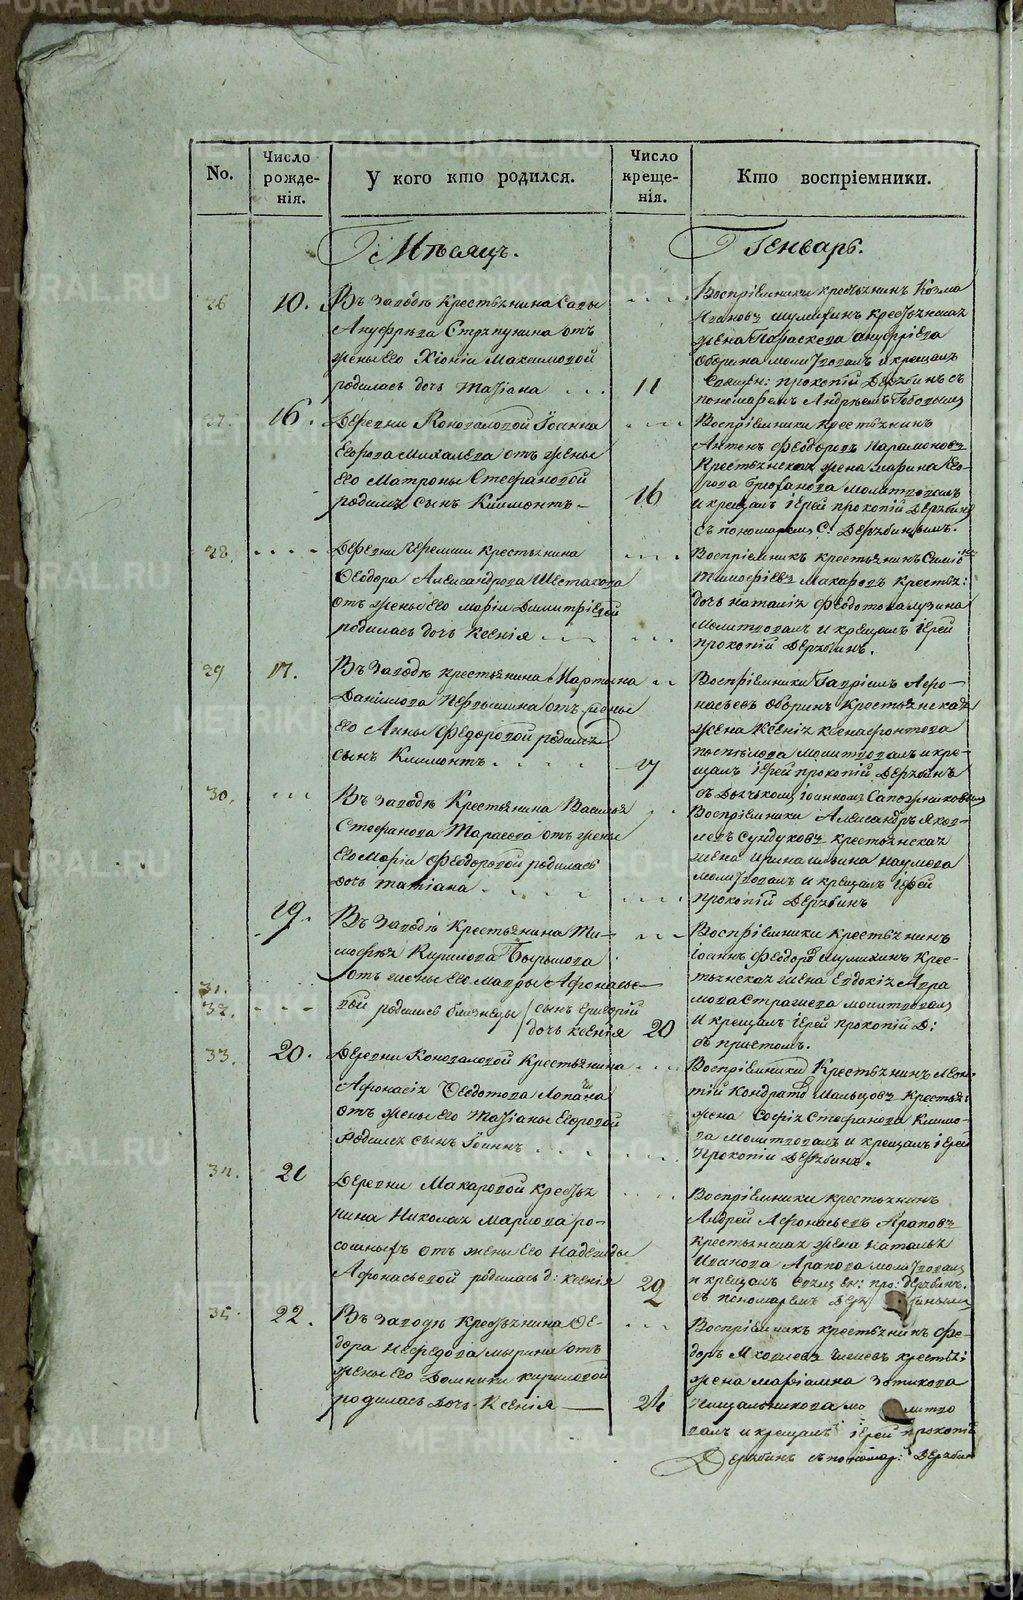 METRIKI.GASO-URAL.RU
No.
Число рожденія.
У кого кто родился.
Число крещенія.
Кто воспріемники.
Мѣсяцъ.
Генварь.
26
10.
Въ Заводѣ крестьянина Савы
отъ
жены Его Хіоніи Максимовой
родилась дочь Татіана
11
Воспріемники крестьянинъ Козма
Ивановъ крестьянская
жена Параскева
молитвовалъ и крещалъ
Священ: прокопій Дерябинъ съ
пономаремъ Андреемъ
27.
16.
Деревни Коноваловой Іоанна
Егорова Михалева отъ жены
Его Матроны Стефановой
родился сынъ Климонтъ
16
Воспріемники крестьянинъ
Антонъ Феодоровъ Парамоновъ
Крестьянская жена марина Его-
рова молитвовалъ
и крещалъ іерей прокопій Дерябинъ
съ пономаремъ С: Дерябинымъ.
28.
Деревни Черемши крестьянина
Феодора Александрова Шестакова
отъ жены Его Маріи Димитріевой
родилась дочь Ксенія
Воспріемникъ крестьянинъ
Тимофіевъ Макаровъ крестья:
дочь наталія Федотова
Молитвовалъ и крещалъ іерей
прокопій Дерябинъ.
29
17.
Въ Заводѣ крестьянина Мартина
Данилова отъ жены
Его Анны Федоровой родился
сынъ Климонтъ
17
Воспріемники Гавріилъ Афо-
насьевъ Оборинъ Крестьянская
жена Ксенія ксенафонтова
поспѣлова молитвовалъ и кре-
щалъ іерей прокопій Дерябинъ
съ Дьячкомъ іоанномъ Сапожниковымъ
30.
Въ Заводѣ Крестьянина Василья
Стефанова Тарасова отъ жены
Его Маріи Феодоровой родилась
дочь татіана
Воспріемники Александръ Яков-
левъ Сундуковъ крестьянская
жена ирина ильина наумова
молитвовалъ и крещалъ іерей
прокопій Дерябинъ
31.
32.
19.
Въ Заводѣ Крестьянина Ти-
мофея Кирилова
отъ жены Его Мавры Афонасье-
вой родились близнецы сынъ Григорій
дочь ксенія
20
Воспріемники крестьянинъ
іоаннъ Федоровъ Крес-
тьянская жена Евдокія Авра
мова Страшева молитвовалъ
и крещалъ іерей прокопій Д:
съ
33.
20.
Деревни Коноваловой Крестьянина
Афонасія Феодотова
отъ жены Его Татіаны Егоровой
Родился сынъ Іоаннъ
Воспріемники Крестьянинъ Леон-
тій Кондратовъ Мальцовъ Крестья:
жена Софія Стефанова Климо-
ва молитвовалъ и крещалъ іерей
Прокопій Дерябинъ.
34.
21
Деревни Макаровой крестья
нина Николая Маркова ро-
сошныхъ отъ жены Его Надежды
Афонасьевой родилась д: ксенія
29
Воспріемники крестьянинъ
Андрей Афонасьевъ Араповъ
крестьянская жена наталья
Иванова Арапова молитвовалъ
и крещалъ свящ ен: про: дерябинъ.
съ пономаремъ Деря биныма
35.
22.
Въ Заводѣ Крестьянина Фе-
дора отъ
жены Его Домники кириловой
родилась дочь Ксенія
24
Воспріемникъ крестьянинъ Фе-
доръ Яковлевъ крестья:
жена маріамна Зотикова
мо литво
валъ и крещалъ іерей прокопій
Дерябинъ съ пономар: Дерябин